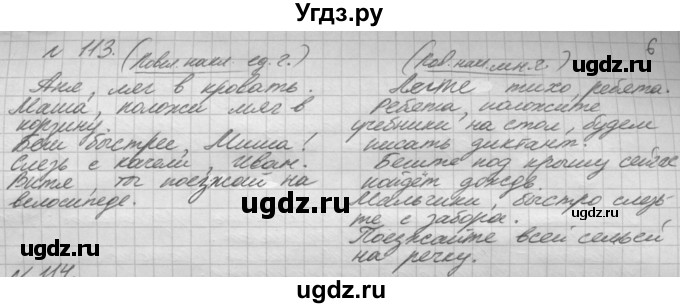 Угдз.ру
N 113. (Повел. накл. ед. г.)
Аня, ляг в кровать.
Маша, положи мяг в
корзину.
Беги быстрее, Миша!
Слезь с качели, Иван.
Витя, ты поезжай на
велосипеде.
N 114
6
(Пов. накл. мн. г.)
Лягте тихо, ребята.
Ребята, положите
учебники на стол, будем
писать диктант.
Бегите под крышу сейчас
пойдёт дождь.
Мальчики, быстро слезь-
те с забора.
Поезжайте всей семьёй
на речку.
ugdz.ru
ugdz.ru
ugdz.ru
ugdz.ru
ugdz.ru
ugdz.ru